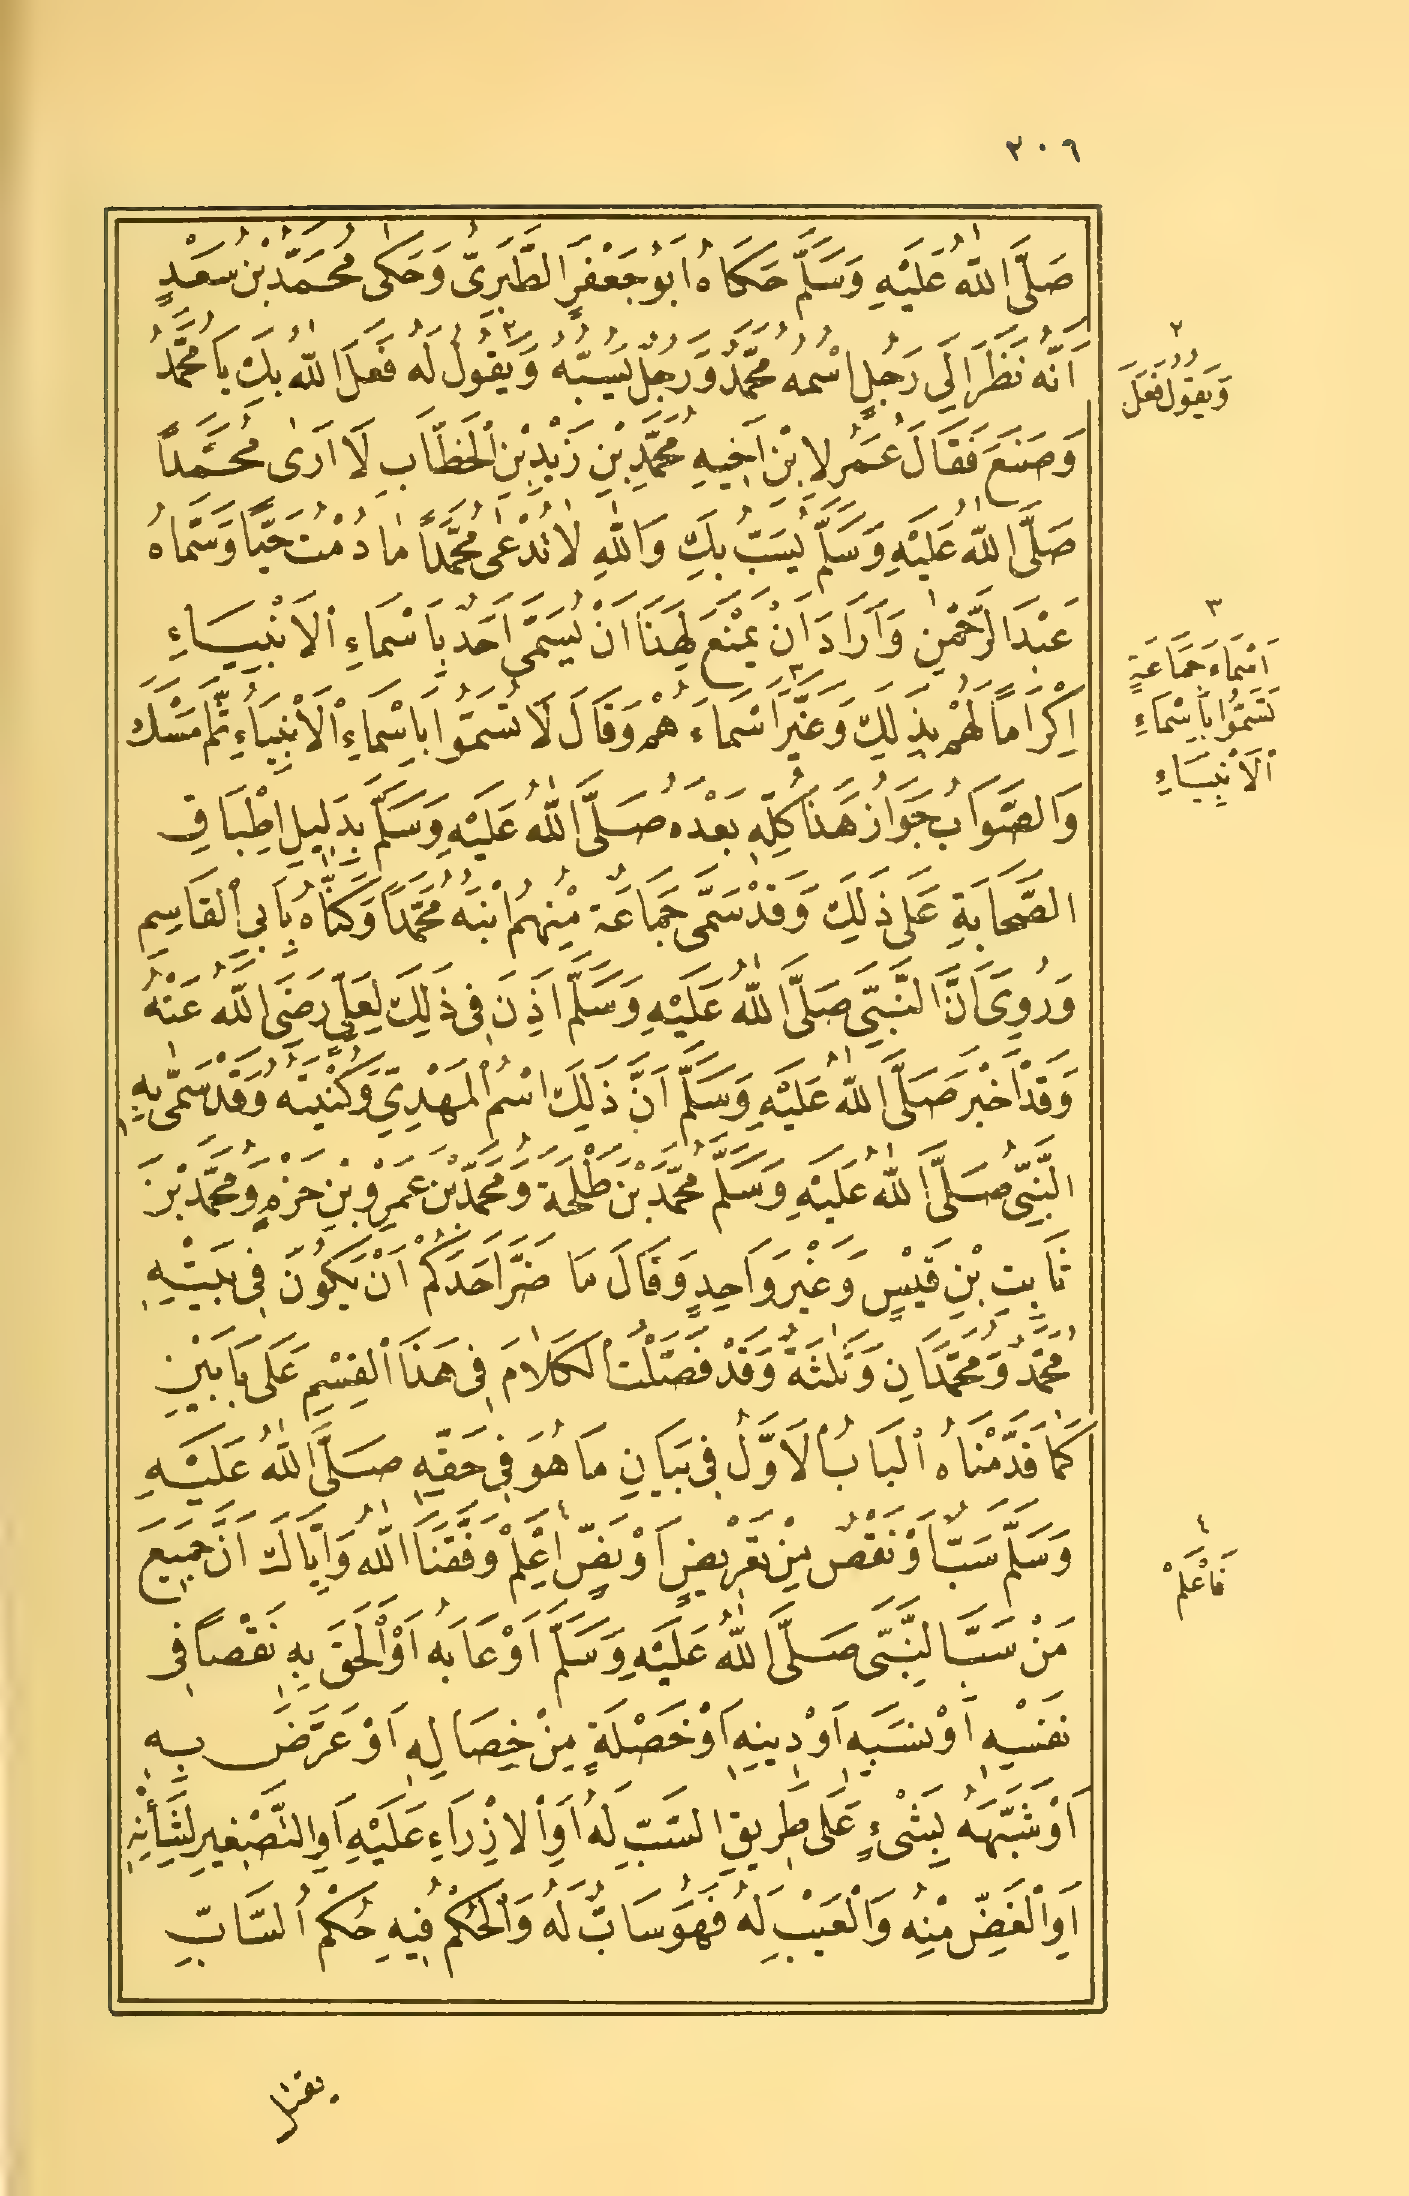 ٢٠٦
صَلَّى اللّٰهُ عَلَيْهِ وَسَلَّمَ حَكَاهُ اَبُو جَعْفَرٍ الطَّبَرِىُّ وَحَكٰى مُحَمَّدُ بْنُ سَعْدٍ
اَنَّهُ نَظَرَ اِلَى رَجُلٍ اسْمُهُ مُحَمَّدٌ وَرَجُلٌ يَسُبُّهُ وَيَقُولُ لَهُ فَعَلَ اللّٰهُ بِكَ يَا مُحَمَّدُ
وَصَنَعَ فَقَالَ عُمَرُ لِابْنِ اَخِيهِ مُحَمَّدِ بْنِ زَيْدِ بْنِ الْخَطَّابِ لَا اَرٰى مُحَمَّداً
صَلَّى اللّٰهُ عَلَيْهِ وَسَلَّمَ يُسَبُّ بِكَ وَاللّٰهِ لَا تُدْعٰى مُحَمَّداً مَا دُمْتُ حَيًّا وَسَمَّاهُ
عَبْدَ الرَّحْمٰنِ وَاَرَادَ اَنْ يَمْنَعَ لِهَذَا اَنْ يُسَمَّى اَحَدٌ بِاَسْمَاءِ الْاَنْبِيَاءِ
اِكْرَاماً لَهُمْ بِذٰلِكَ وَغَيَّرَ اَسْمَاءَهُمْ وَقَالَ لَا تُسَمُّوا بِاَسْمَاءِ الْاَنْبِيَاءِ ثُمَّ اَمْسَكَ
وَالصَّوَابُ جَوَازُ هَذَا كُلِّهِ بَعْدَهُ صَلَّى اللّٰهُ عَلَيْهِ وَسَلَّمَ بِدَلِيلِ اِطْبَاقِ
الصَّحَابَةِ عَلَى ذٰلِكَ وَقَدْ سَمَّى جَمَاعَةٌ مِنْهُمُ ابْنَهُ مُحَمَّداً وَكَنَّاهُ بِاَبِى الْقَاسِمِ
وَرُوِىَ اَنَّ النَّبِىَّ صَلَّى اللّٰهُ عَلَيْهِ وَسَلَّمَ اَذِنَ فِى ذٰلِكَ لِعَلِىٍّ رَضِىَ اللّٰهُ عَنْهُ
وَقَدْ اَخْبَرَ صَلَّى اللّٰهُ عَلَيْهِ وَسَلَّمَ اَنَّ ذٰلِكَ اسْمُ الْمَهْدِىِّ وَكُنْيَتُهُ وَقَدْ سَمّٰى بِهِ
النَّبِىُّ صَلَّى اللّٰهُ عَلَيْهِ وَسَلَّمَ مُحَمَّدَ بْنَ طَلْحَةَ وَمُحَمَّدَ بْنَ عَمْرِو بْنِ حَزْمٍ وَمُحَمَّدَ بْنَ
ثَابِتِ بْنِ قَيْسٍ وَغَيْرَ وَاحِدٍ وَقَالَ مَا ضَرَّ اَحَدَكُمْ اَنْ يَكُونَ فِى بَيْتِهِ
مُحَمَّدٌ وَمُحَمَّدَانِ وَثَلٰثَةٌ وَقَدْ فَصَّلْتُ الْكَلَامَ فِى هَذَا الْقِسْمِ عَلَى بَابَيْنِ
كَمَا قَدَّمْنَاهُ الْبَابُ الْاَوَّلُ فِى بَيَانِ مَا هُوَ فِى حَقِّهِ صَلَّى اللّٰهُ عَلَيْهِ
وَسَلَّمَ سَبٌّ اَوْ نَقْصٌ مِنْ تَعْرِيضٍ اَوْ نَصٍّ اِعْلَمْ وَفَّقَنَا اللّٰهُ وَاِيَّاكَ اَنَّ جَمِيعَ
مَنْ سَبَّ النَّبِىَّ صَلَّى اللّٰهُ عَلَيْهِ وَسَلَّمَ اَوْ عَابَهُ اَوْ اَلْحَقَ بِهِ نَقْصاً فِى
نَفْسِهِ اَوْ نَسَبِهِ اَوْ دِينِهِ اَوْ خَصْلَةٍ مِنْ خِصَالِهِ اَوْ عَرَّضَ بِهِ
اَوْ شَبَّهَهُ بِشَىْءٍ عَلَى طَرِيقِ السَّبِّ لَهُ اَوِ الْاِزْرَاءِ عَلَيْهِ اَوِ التَّصْغِيرِ لِشَأْنِهِ
اَوِ الْغَضِّ مِنْهُ وَالْعَيْبِ لَهُ فَهُوَ سَابٌّ لَهُ وَالْحُكْمُ فِيهِ حُكْمُ السَّابِّ
يقتل
٢
وَيَقُولُ فَعَلَ
٣
اَسْمَاءَ جَمَاعَةٍ
تَسَمَّوْا بِاَسْمَاءِ
الْاَنْبِيَاءِ
٤
فَاعْلَمْ